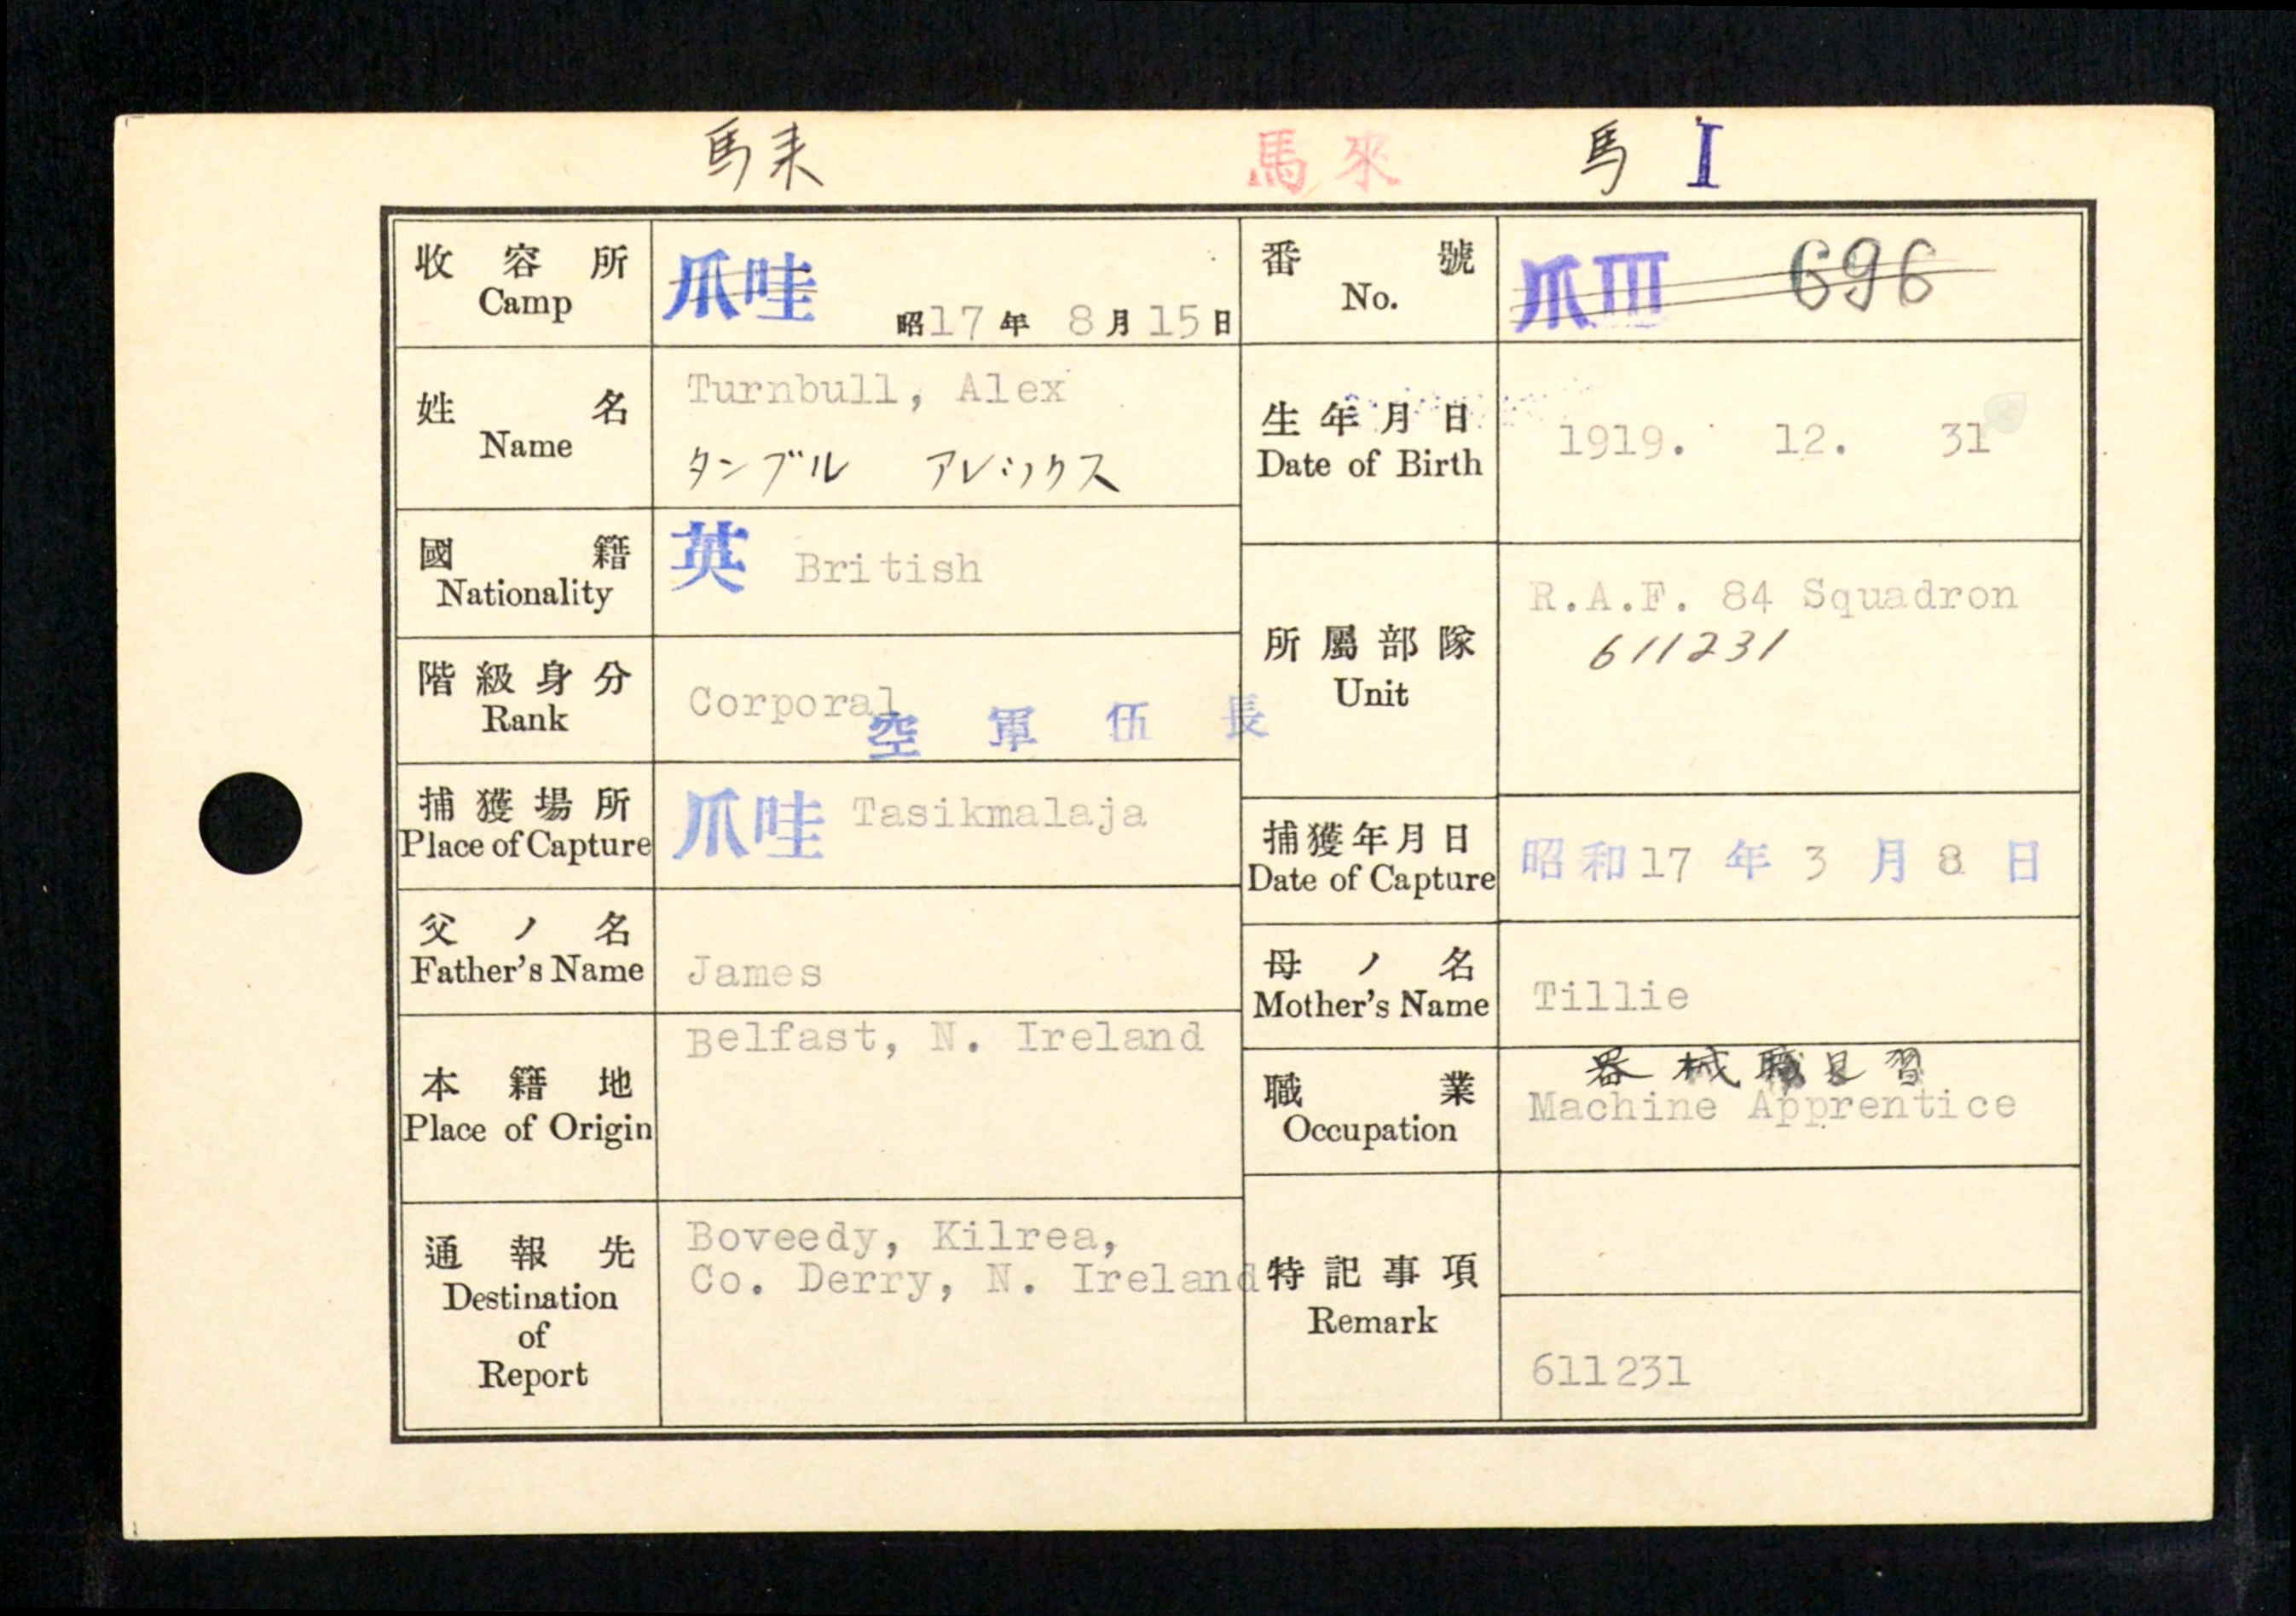 馬来 馬來 馬 I
收容所 Camp 爪哇 昭17年 8月15日
番號 No. 爪III 696
姓名 Name Turnbull, Alex
タンブル アレックス
生年月日 Date of Birth 1919. 12. 31
國籍 Nationality 英 British
階級身分 Rank Corporal 空軍伍長
所屬部隊 Unit R.A.F. 84 Squadron
611231
捕獲場所 Place of Capture 爪哇 Tasikmalaja
捕獲年月日 Date of Capture 昭和17年3月8日
父ノ名 Father's Name James
母ノ名 Mother's Name Tillie
本籍地 Place of Origin Belfast, N. Ireland
職業 Occupation 器械職見習
Machine Apprentice
通報先 Destination of Report Boveedy, Kilrea,
Co. Derry, N. Ireland
特記事項 Remark 611231